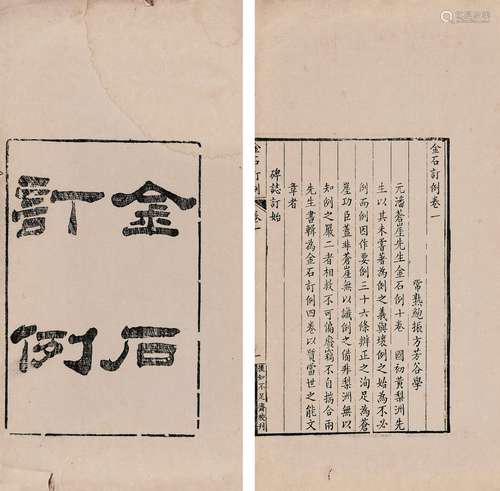 金石
訂例
金石訂例卷一
常熟鮑振方芳谷學
元潘蒼崖先生金石例十卷 國初黃梨洲先
生以其未嘗著為例之義與壞例之始為不必
例而例因作要例三十六條辨正之洵足為蒼
崖功臣蓋非蒼崖無以識例之備非梨洲無以
知例之嚴二者相救不可偏廢竊不自揣合兩
先生書輯為金石訂例四卷以質當世之能文
章者
碑誌訂始
金石訂例 卷一
一
後知不足齋校刊